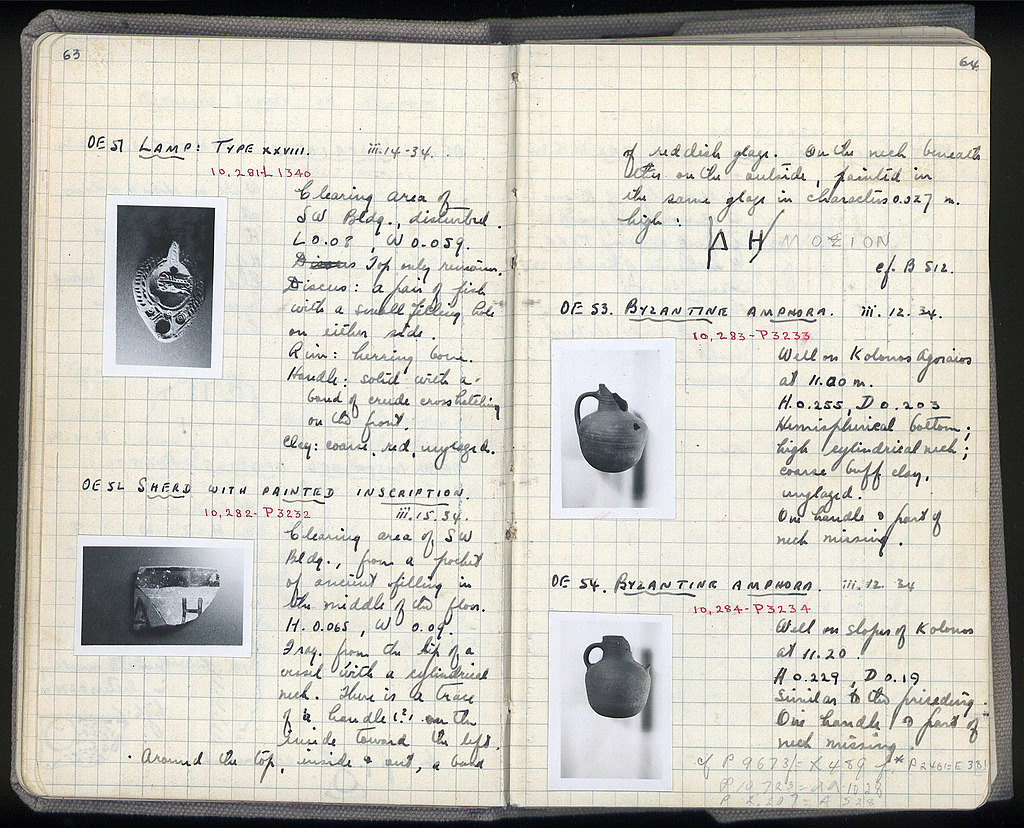 63
OE 51 LAMP: TYPE XXVIII. iii.14-34.
10,281-L1340
Clearing area of
SW Bldg., disturbed.
L 0.08, W 0.059.
Top only remains.
Discus: a pair of fish
with a small filling hole
on either side.
Rim: herring bone.
Handle: solid with a
band of crude crosshatching
on the front.
Clay: coarse, red, unglazed.
OE 52 SHERD WITH PAINTED INSCRIPTION.
10,282-P3232 iii.15.34.
Clearing area of SW
Bldg., from a pocket
of ancient filling in
the middle of the floor.
H. 0.065, W 0.09.
Frag. from the lip of a
vessel with a cylindrical
neck. There is a trace
of a handle (?) on the
inside toward the left.
Around the top, inside & out, a band
64
of reddish glaze. On the neck beneath
this on the outside, painted in
the same glaze in characters 0.027 m.
high:
Δ Η ΜΟΣΙΟΝ
cf. B 512.
OE 53. BYZANTINE AMPHORA. iii.12.34.
10,283-P3233
Well on Kolonos Agoraios
at 11.00 m.
H. 0.255, D 0.203
Hemispherical bottom;
high cylindrical neck;
coarse buff clay,
unglazed.
One handle & part of
neck missing.
OE 54. BYZANTINE AMPHORA. iii.12.34
10,284-P3234
Well on slopes of Kolonos
at 11.20.
H 0.229, D 0.19
Similar to the preceding.
One handle & part of
neck missing
cf P 9673 = X 489 P 2461 = E 381